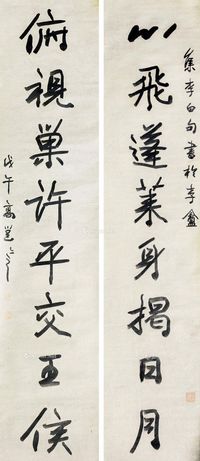 心飛蓬萊身揭日月
集李白句書於李盦
俯視巢許平交王侯
戊午高邕